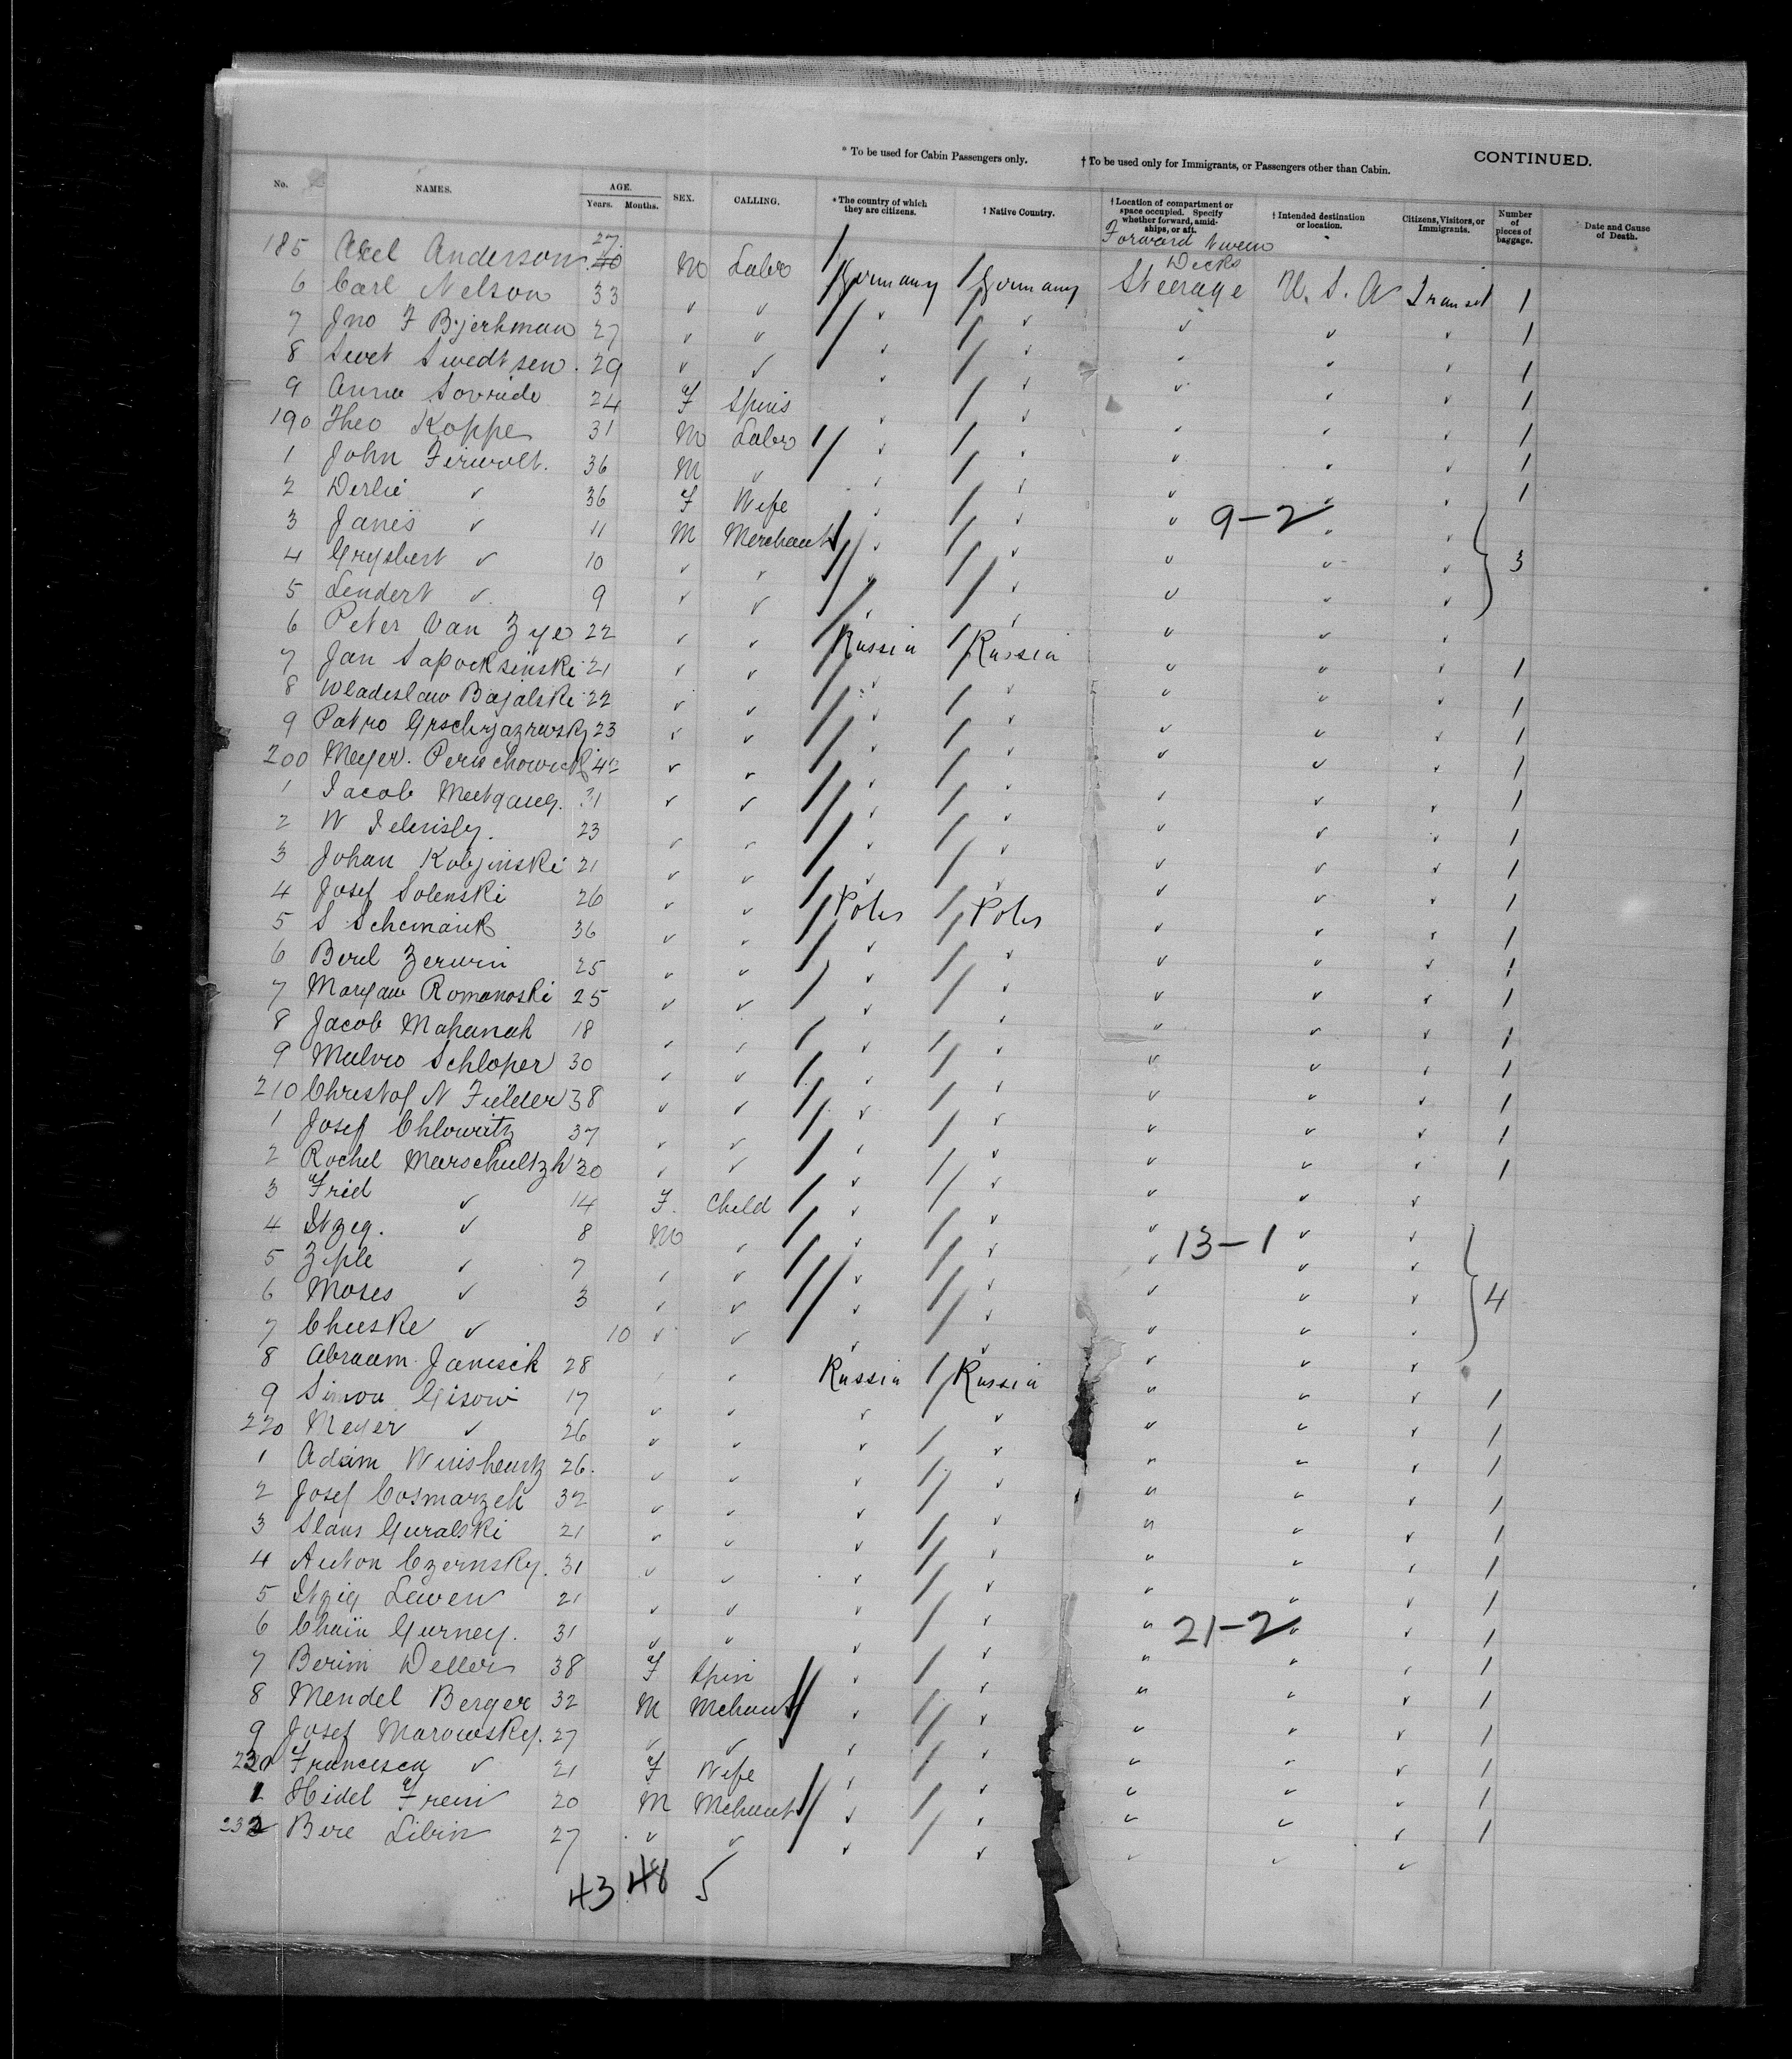 * To be used for Cabin Passengers only. † To be used only for Immigrants, or Passengers other than Cabin. CONTINUED.
No. NAMES. AGE. Years. Months. SEX. CALLING. * The country of which they are citizens. † Native Country. † Location of compartment or space occupied. Specify whether forward, amidships, or aft. † Intended destination or location. Citizens, Visitors, or Immigrants. Number of pieces of baggage. Date and Cause of Death.
Forward
185 Axel Anderson 27 M Labr Germany Germany Steerage U.S.A Transit 1
6 Carl Nelson 33 ✓ ✓ ✓ ✓ ✓ ✓ ✓ 1
7 Jno F Bjerkman 27 ✓ ✓ ✓ ✓ ✓ ✓ ✓ 1
8 Swedtsen 29 ✓ ✓ ✓ ✓ ✓ ✓ ✓ 1
9 Anna 24 F Spins ✓ ✓ ✓ ✓ ✓ 1
190 Theo Koppe 31 M Labr ✓ ✓ ✓ ✓ ✓ 1
1 John 36 M ✓ ✓ ✓ ✓ ✓ ✓ 1
2 ✓ 36 F Wife ✓ ✓ ✓ 9-2 ✓ ✓
3 Janis ✓ 11 M Merchant ✓ ✓ ✓ ✓ ✓ 3
4 Grysbert ✓ 10 ✓ ✓ ✓ ✓ ✓ ✓ ✓
5 Lendert ✓ 9 ✓ ✓ ✓ ✓ ✓ ✓ ✓
6 Peter Van Zye 22 ✓ ✓ Russia Russia ✓ ✓ ✓ 1
7 Jan Sapocksinski 21 ✓ ✓ ✓ ✓ ✓ ✓ ✓ 1
8 Wladislaw Bajalski 22 ✓ ✓ ✓ ✓ ✓ ✓ ✓ 1
9 Patro 23 ✓ ✓ ✓ ✓ ✓ ✓ ✓ 1
200 Meyer 42 ✓ ✓ ✓ ✓ ✓ ✓ ✓ 1
1 Jacob 31 ✓ ✓ ✓ ✓ ✓ ✓ ✓ 1
2 W 23 ✓ ✓ ✓ ✓ ✓ ✓ ✓ 1
3 Johan Kolyinski 21 ✓ ✓ ✓ ✓ ✓ ✓ ✓ 1
4 Josef Solenski 26 ✓ ✓ Poles Poles ✓ ✓ ✓ 1
5 S Schemank 36 ✓ ✓ ✓ ✓ ✓ ✓ ✓ 1
6 Berel Zerwin 25 ✓ ✓ ✓ ✓ ✓ ✓ ✓ 1
7 Maryan Romanoski 25 ✓ ✓ ✓ ✓ ✓ ✓ ✓ 1
8 Jacob Mahanah 18 ✓ ✓ ✓ ✓ ✓ ✓ ✓ 1
9 Schloper 30 ✓ ✓ ✓ ✓ ✓ ✓ ✓ 1
210 Christof N Fielder 38 ✓ ✓ ✓ ✓ ✓ ✓ ✓ 1
1 Josef Chlowitz 37 ✓ ✓ ✓ ✓ ✓ ✓ ✓ 1
2 Rochel Marschultzh 30 ✓ ✓ ✓ ✓ ✓ ✓ ✓
3 Fried ✓ 14 F. Child ✓ ✓ ✓ ✓ ✓
4 Itzeg. ✓ 8 M ✓ ✓ ✓ ✓ 13-1 ✓ ✓
5 Ziple ✓ 7 ✓ ✓ ✓ ✓ ✓ ✓ ✓ 4
6 Moses ✓ 3 ✓ ✓ ✓ ✓ ✓ ✓ ✓
7 Chieske ✓ 10 ✓ ✓ ✓ ✓ ✓ ✓ ✓
8 Abraam Janisch 28 ✓ ✓ Russia Russia ✓ ✓ ✓ 1
9 Simon Gisowi 17 ✓ ✓ ✓ ✓ ✓ ✓ ✓ 1
220 Meyer ✓ 26 ✓ ✓ ✓ ✓ ✓ ✓ ✓ 1
1 Adam 26 ✓ ✓ ✓ ✓ ✓ ✓ ✓ 1
2 Josef Cosmarzek 32 ✓ ✓ ✓ ✓ ✓ ✓ ✓ 1
3 Slaus Guralski 21 ✓ ✓ ✓ ✓ ✓ ✓ ✓ 1
4 Anton Czernsky. 31 ✓ ✓ ✓ ✓ ✓ ✓ ✓ 1
5 Itzig Lewen 21 ✓ ✓ ✓ ✓ ✓ ✓ ✓ 1
6 Chain Gurney. 31 ✓ ✓ ✓ ✓ ✓ 21-2 ✓ ✓ 1
7 Berim Deller 38 F Spin ✓ ✓ ✓ ✓ ✓ 1
8 Mendel Berger 32 M Mchant ✓ ✓ ✓ ✓ ✓ 1
9 Josef Marowsky. 27 ✓ ✓ ✓ ✓ ✓ ✓ ✓ 1
230 Francisca ✓ 21 F Wife ✓ ✓ ✓ ✓ ✓ 1
1 Heidel Frein 20 M Mchant ✓ ✓ ✓ ✓ ✓ 1
232 Bere Libin 27 ✓ ✓ ✓ ✓ ✓ ✓ ✓
43 48 5